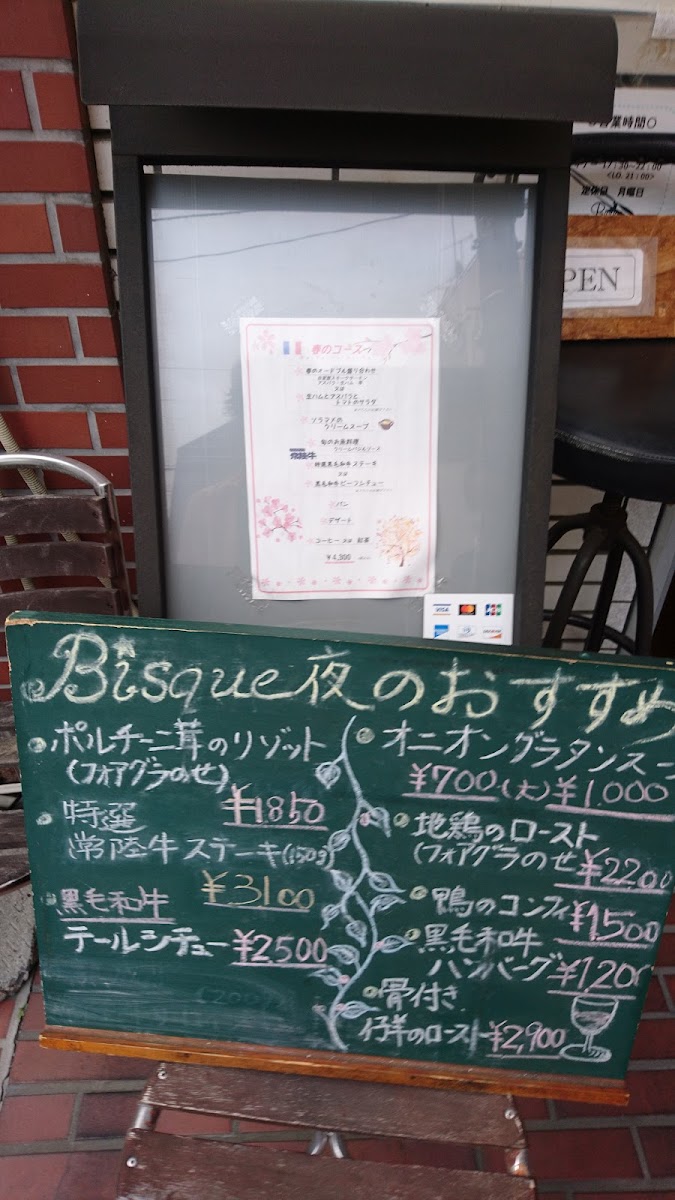 営業時間○
17:30~22:00
<LO. 21:00>
定休日 月曜日
PEN
春のコース
春のオードブル盛り合わせ
又は
生ハムとアスパラと
トマトのサラダ
ソラマメの
クリームスープ
旬のお魚料理
常陸牛
特選黒毛和牛ステーキ
又は
黒毛和牛ビーフシチュー
パン
デザート
コーヒー 又は 紅茶
¥4,300
VISA
JCB
Bisque夜のおすすめ
ポルチーニ茸のリゾット
(フォアグラのせ)
¥1850
特選
常陸牛ステーキ(150g)
¥3100
黒毛和牛
テールシチュー ¥2500
オニオングラタンスー
¥700 (大) ¥1,000
地鶏のロースト
(フォアグラのせ ¥2200
鴨のコンフィ ¥1,500
黒毛和牛
ハンバーグ ¥1,200
骨付き
仔羊のロースト ¥2,900